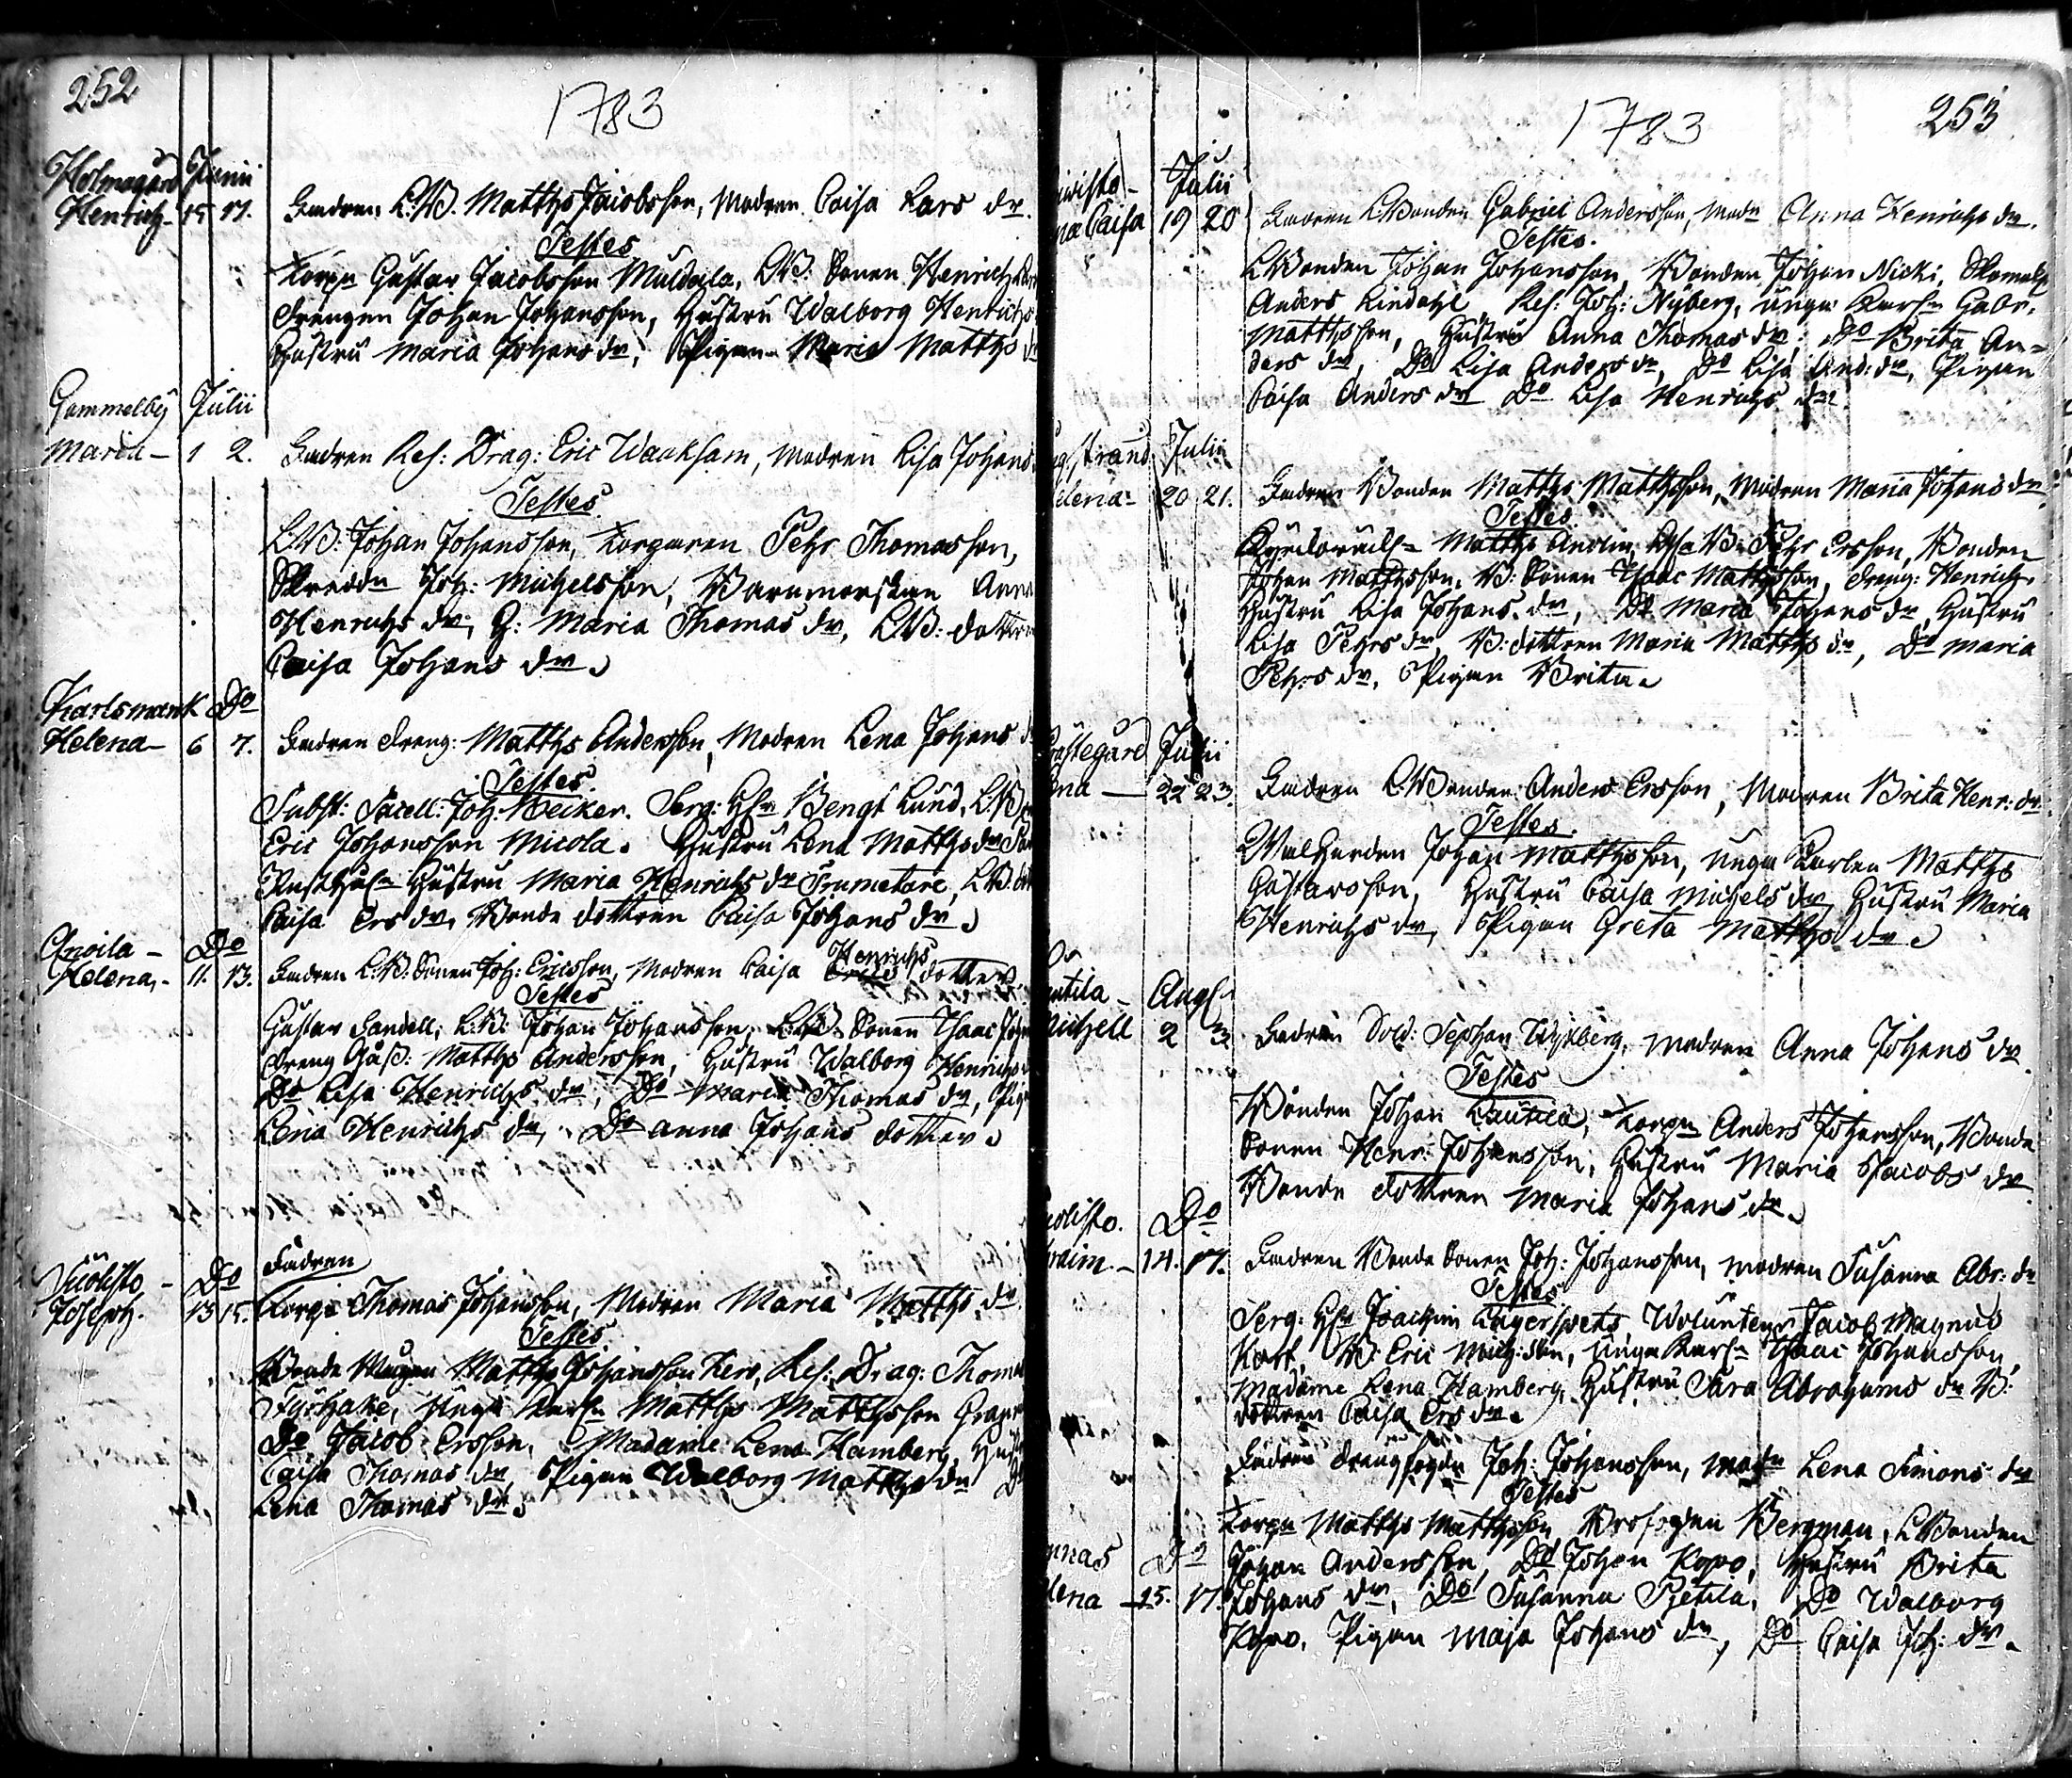 252
1783
Holmagård Junii
Henrich - 15 17. Fadren L.B. Matths Jacobsson, Modren Caisa Lars dr.
Testes
Torpn Gustav Jacobsson Muldala, LB: Sonen Henrich
Drengen Johan Johansson, Hustru Walborg Henrichs
Hustru Maria Johans dr, Pigan Maria Matths dr
Gammelby Julii
Maria - 1 2. Fadren Res: Drag: Eric Waaksam, Modren Lisa Johans
Testes
LB: Johan Johansson, Torparen Pehr Thomasson,
Skreddn Joh: Michelsson, Barnmorskan Anna
Henrichs dr, H: Maria Thomas dr, LB: dottren
Caisa Johans dr.
Karlsmark Do
Helena - 6 7. Fadren Dreng: Matths Andersson, Modren Lena Johans d
Testes.
Subst: Sacell: Joh: Becker. Serg: Hr Bengt Lund, LB
Eric Johansson Micola. Hustru Lena Matths dr
Hustru Maria Henrichs dr Trumetare, LB
Caisa Ers dr, Bonde dottren Caisa Johans dr.
Anvila - Do
Helena, - 11. 13. Fadren L:B: Sonen Joh: Ericsson, Modren Caisa Henrichs dotter
Testes
Gustav Sandell, L:B: Johan Johansson, LB. Sonen Isaac Joh
Dreng Matths Andersson, Hustru Walborg Henrichs
Do Lisa Henrichs dr, Do Maria Thomas dr, Pig
Lena Henrichs dr, Do Anna Johans dotter.
Do Fadren
Joseph. 13 15. Torpn Thomas Johansson, Modren Maria Matths dr
Testes
Bonde Mågen Matths Johansson Kero, Res: Drag: Thomas
Fyrhake, Unga Karln Matths Matthsson
Do Jacob Ersson, Madame Lena Hamberg, Hust
Caisa Thomas dr, Pigan Walborg Matths dr D
Lena Thomas dr.
1783
253
Julii
Caisa 19 20 Fadren LBonden Gabriel Andersson, Modn Anna Henrichs dr.
Testes.
LBonden Johan Johansson, Bonden Johan Nicki,
Anders Lindahl Res: Joh: Nyberg, Unga Karln Gabr.
Matthsson, Hustru Anna Thomas dr, Do Brita An=
ders dr, Do Lisa Anders dr, Do Lisa And: dr, Pigan
Caisa Anders dr Do Lisa Henrichs dr.
strand Julii
elena - 20 21. Fadren Bonden Matths Matthsson, Modren Maria Johans dr
Testes
Matths Pehr Ersson, Bonden
Johan Matthsson, B: Sonen Isaac Matthsson, Dreng: Henrich
Hustru Lisa Johans dr, Do Maria Johans dr, Hustru
Lisa Pehrs dr, B: dottren Maria Matths dr, Do Maria
Pehrs dr, Pigan Brita.
stegård Julii
na - 22 23. Fadren L:Bonden Anders Ersson, Modren Brita Henr: dr
Testes.
Johan Matthsson, Unga Karlen Matths
Gustavsson, Hustru Caisa Michels dr, Hustru Maria
Henrichs dr, Pigan Greta Matths dr.
utila - Augt
Michell 2 3. Fadren Sold: Stephan Myrberg, Modren Anna Johans dr
Testes
Bonden Johan Lautila, Torpn Anders Johansson, Bonde
Sonen Henr: Johansson, Hustru Maria Jacobs dr
Bonde dottren Maria Johans dr.
olisto. Do
raim. - 14. 17. Fadren Bonde Sonen Joh: Johansson, Modren Susanna Abr: dr
Testes
Serg: Hr Joachim Lagerspets Woluntern Jacob Magnus
Kort, B: Eric Mich:son, Unga Karln Isaac Johansson,
Madame Lena Hamberg, Hustru Sara Abrahams dr B:
dottren Caisa Ers dr.
Fadren Drengfogdn Joh: Johansson, Modn Lena Simons dr
Testes
Torpn Matths Matthsson, Brofogden Bergman, LBonden
nnas Do Johan Andersson, Do Johan Kopo, Hustru Brita
lena - 15. 17. Johans dr, Do Susanna Pietila, Do Walborg
Kopo, Pigan Maja Johans dr, Do Caisa Joh: dr.